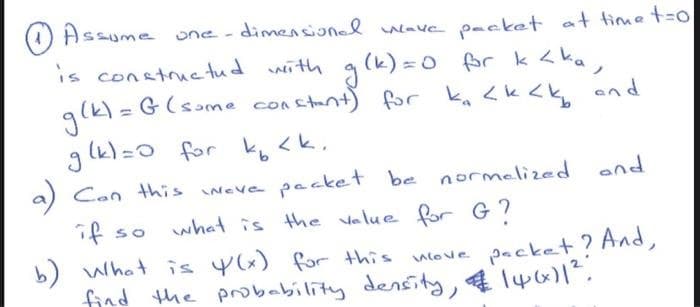 ① Assume one-dimensional wave packet at time t=0
is constructud with g(k)=0 for k<kₐ,
g(k)=G (some constant) for kₐ<k<k_b and
g(k)=0 for k_b<k.
a) Can this wave packet be normalized and
if so what is the value for G?
b) What is ψ(x) for this wave packet? And,
find the probability density, |ψ(x)|².